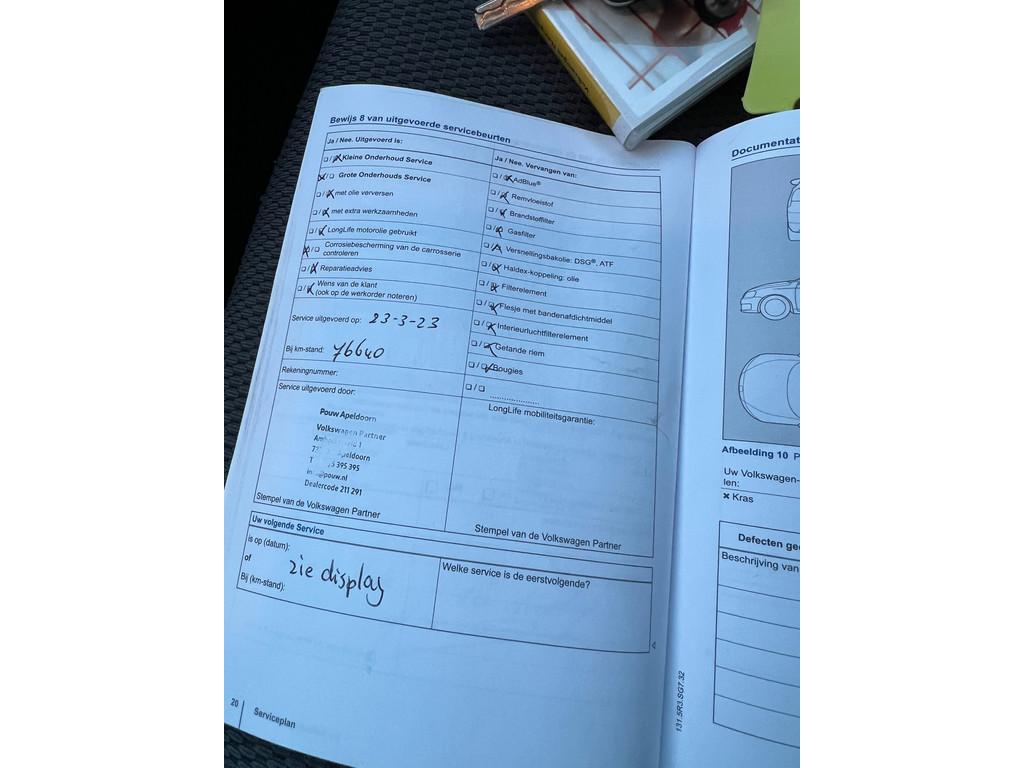 Bewijs 8 van uitgevoerde servicebeurten
Ja / Nee. Uitgevoerd is:
Kleine Onderhoud Service
Grote Onderhouds Service
met olie verversen
met extra werkzaamheden
LongLife motorolie gebruikt
Corrosiebescherming van de carrosserie
controleren
Reparatieadvies
Wens van de klant
(ook op de werkorder noteren)
Service uitgevoerd op: 23-3-23
Bij km-stand: 76640
Rekeningnummer:
Service uitgevoerd door:
Pouw Apeldoorn
Volkswagen Partner
395 395
Dealercode 211 291
Stempel van de Volkswagen Partner
Ja / Nee. Vervangen van:
AdBlue®
Remvloeistof
Brandstoffilter
Gasfilter
Versnellingsbakolie: DSG®, ATF
Haldex-koppeling: olie
Filterelement
Flesje met bandenafdichtmiddel
Interieurluchtfilterelement
Getande riem
Bougies
LongLife mobiliteitsgarantie:
Stempel van de Volkswagen Partner
Uw volgende Service
is op (datum):
of
zie display
Bij (km-stand):
Welke service is de eerstvolgende?
20
Serviceplan
131.5R3.SG7.32
Documentat
Afbeelding 10 P
Uw Volkswagen-
len:
× Kras
Defecten ge
Beschrijving van